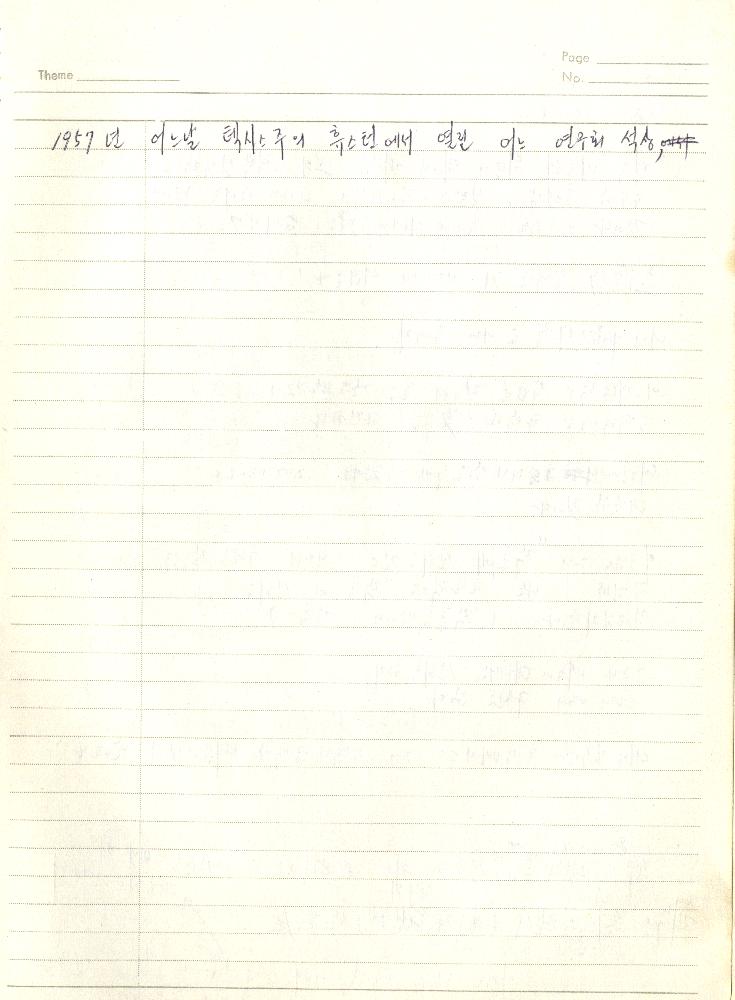 Page
Theme
No.
1957년 어느날 텍사스주의 휴스턴에서 열린 어느 연주회 석상,